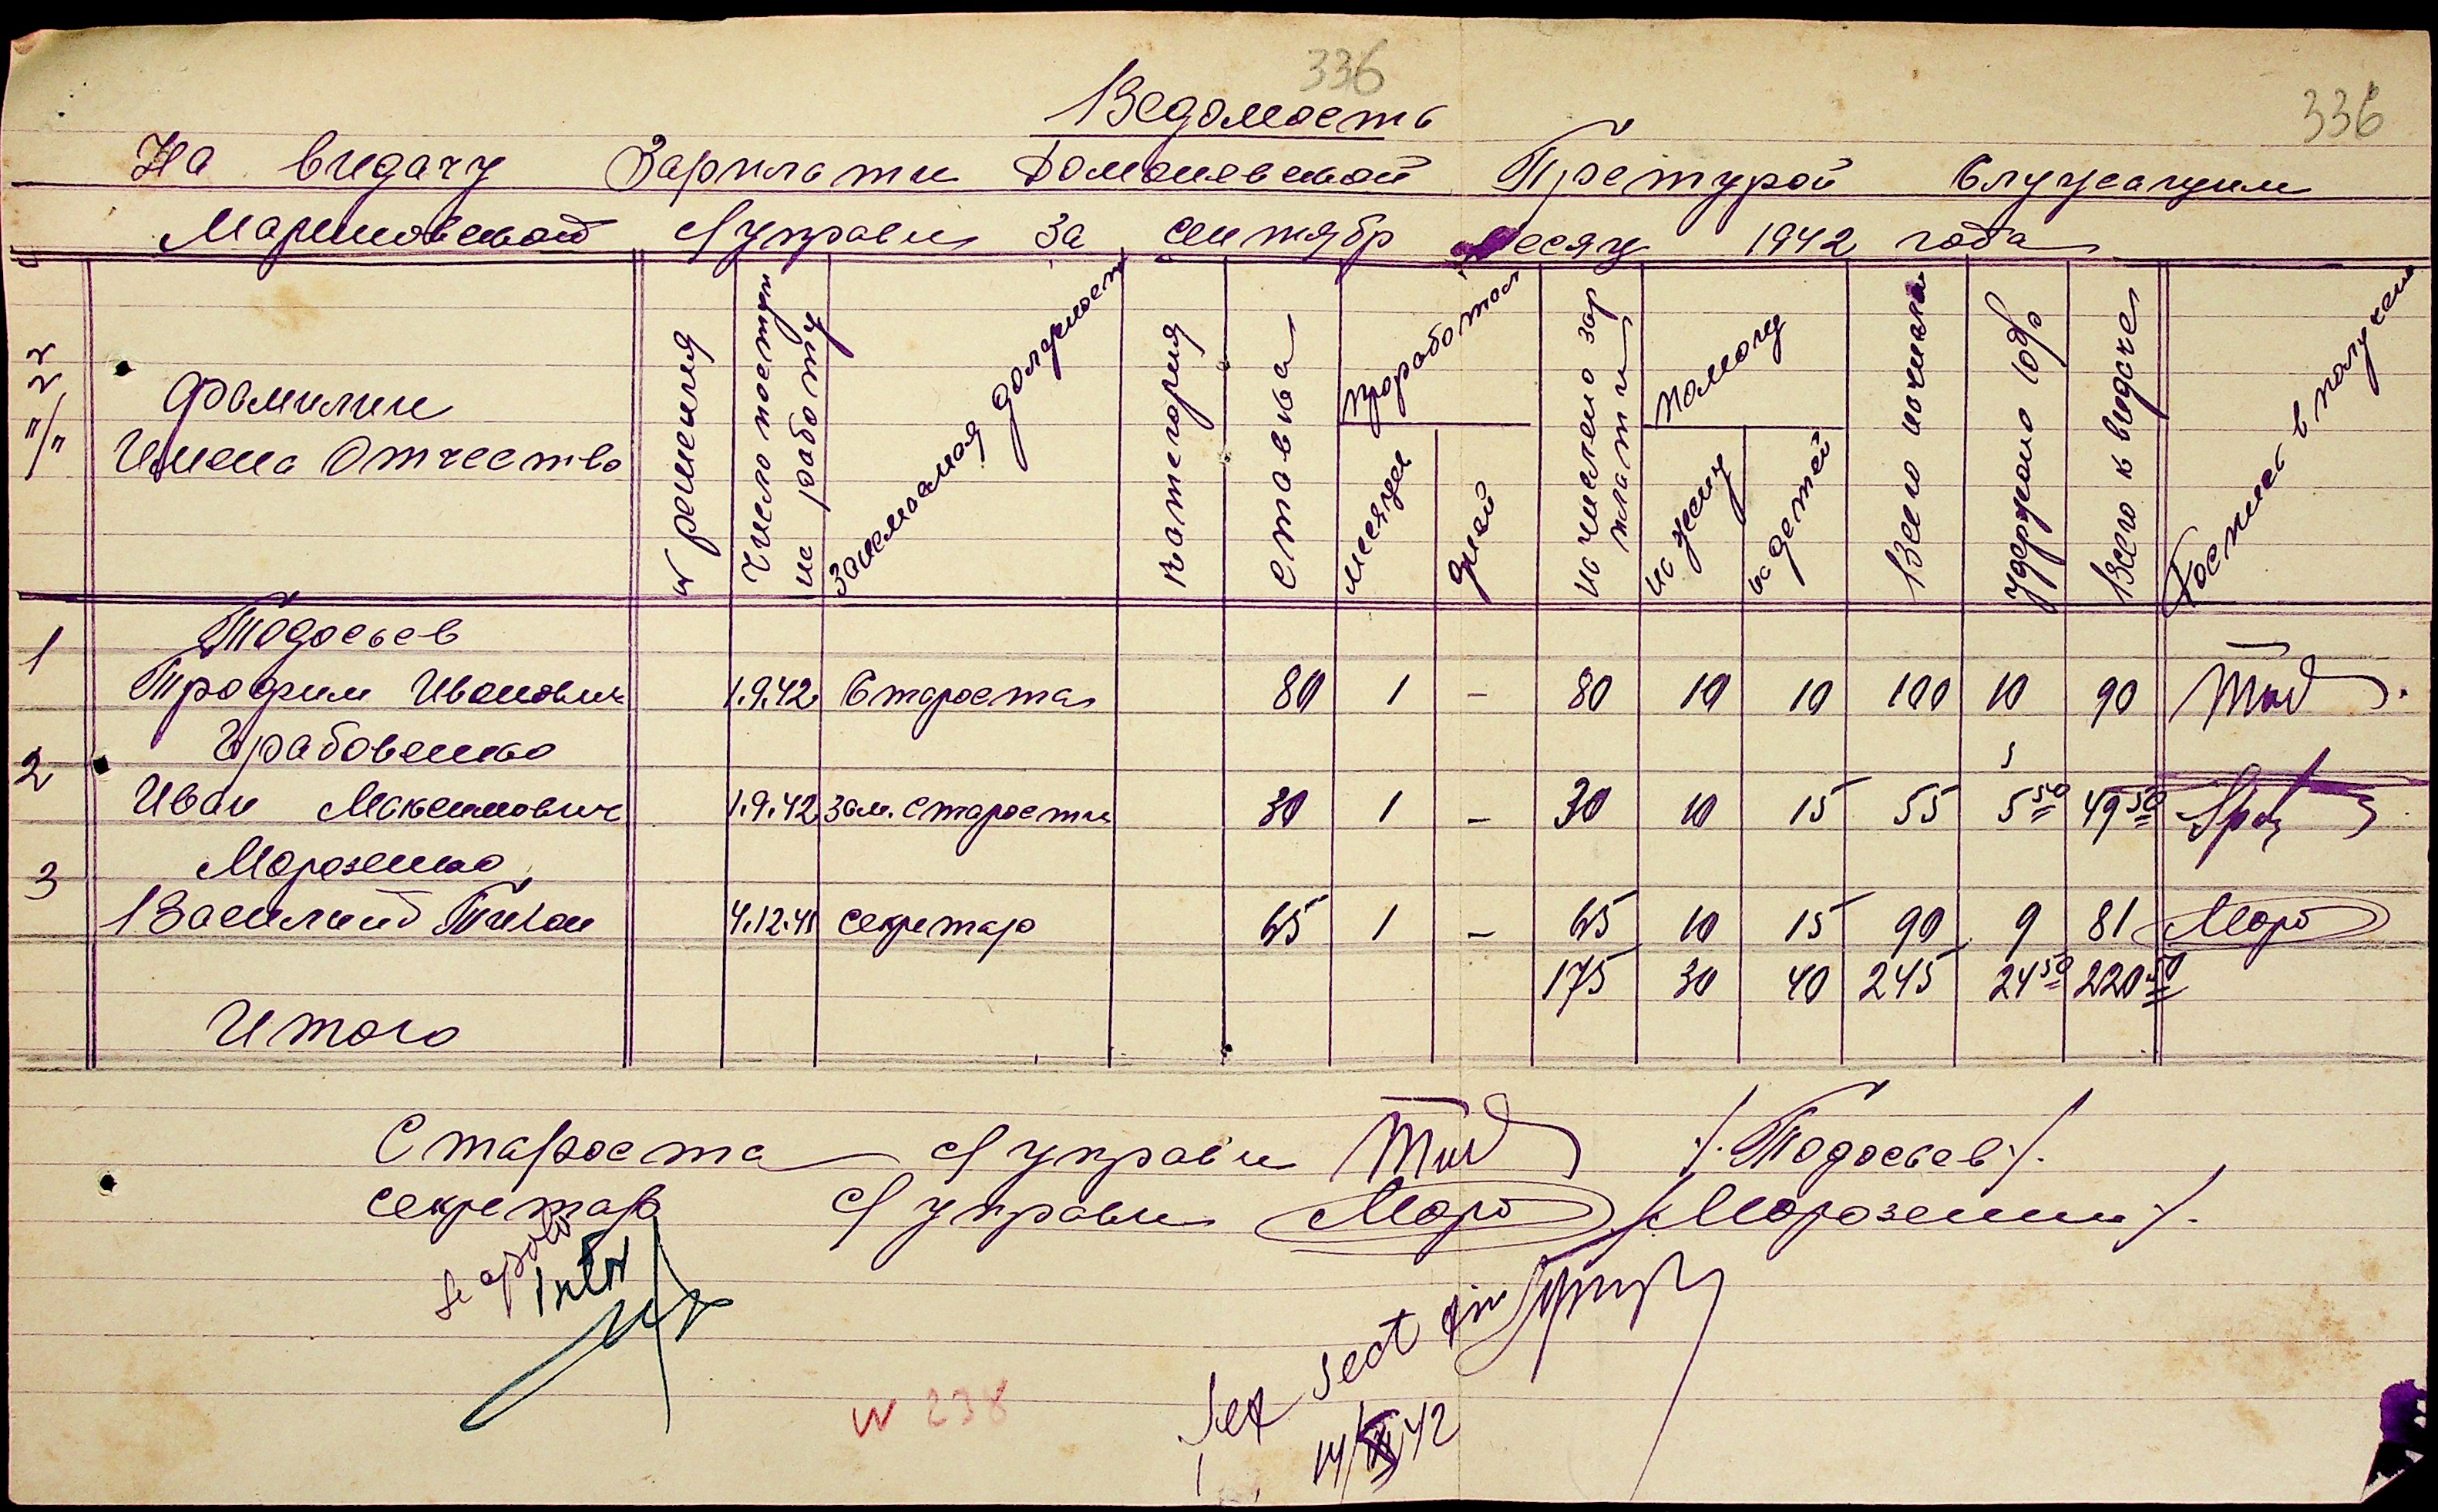 336
336
Ведомость
На видачу Зарплати Доманевской Претурой Служащим
Мариновской С/управи За сентябр месяц 1942 года
№№ п/п
Фамилии Имена Отчество
№ решения
Число поступ на работу
Занемаемая должност
Категория
Ставка
Проработал
месяцев
дней
Начислено зар плати
Помощ
на жену
на детей
Всего начислен
Удержано 10%
Всего к видаче
Роспись в получении
1 Тодосьев
Трофим Иванович 1.9.42 Староста 80 1 – 80 10 10 100 10 90
2 Грабовенко
Иван Максимович 1.9.42 Зам. Старости 30 1 – 30 10 15 55 5 50 49 50
3 Морозенко
Василий Тихон 4.12.41 секретар 65 1 – 65 10 15 90 9 81 Моро
175 30 40 245 24 50 220 50
Итого
Староста С/управи /.Тодосьев./.
секретар С/управи Моро /.Морозенко/.
Se aproba
Șef Sect fin
14/XI 42
N 238